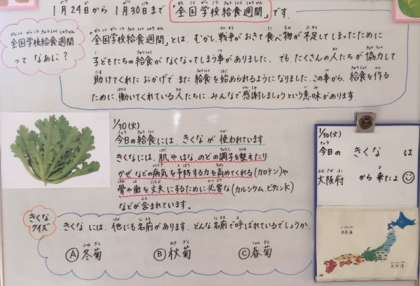 1月24日から 1月30日まで "全国学校給食週間" です。
全国学校給食週間
って なぁに?
"全国学校給食週間" とは、むかし 戦争がおきて 食べ物が 不足してしまったために
子どもたちの 給食が なくなってしまう事がありました。でも たくさんの人たちが 協力して
助けてくれた おかげで また 給食を 始められるようになりました。この事から、給食を作る
ために 働いてくれている人たちに みんなで 感謝しましょう という 意味があります
1/30(火)
今日の給食には、きくな が 使われています
きくなには、肌や はな のどの 調子を整えたり
かぜ などの 病気を 予防する力を 高めてくれる(カロテン)や
骨や歯を 丈夫にするために 必要な(カルシウム ビタミンK)
などが 含まれています。
きくな
クイズ
きくな には、他にも 名前が あります。どんな 名前で 呼ばれているでしょうか
Ⓐ 冬菊 Ⓑ 秋菊 Ⓒ 春菊
1/30(火)
今日の きくな は
大阪府 から 来たよ